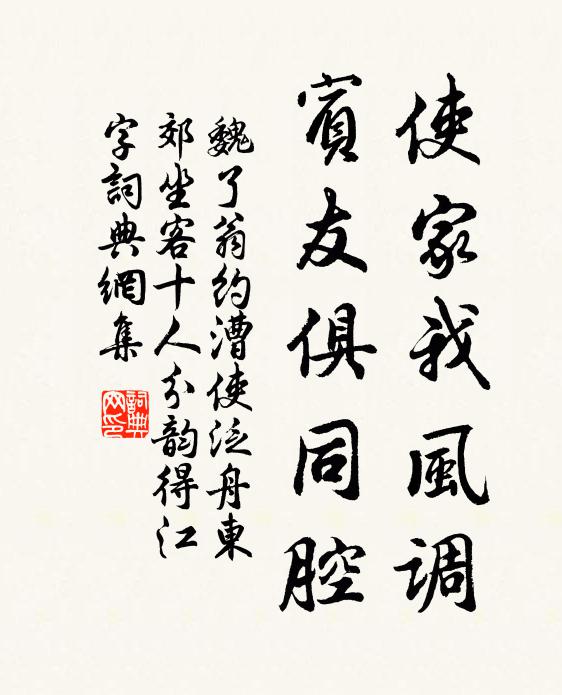 使家我風調
賓友俱同腔
魏了翁約漕使泛舟東
郊坐客十人分韵得江
字詞典網集
詞典网印